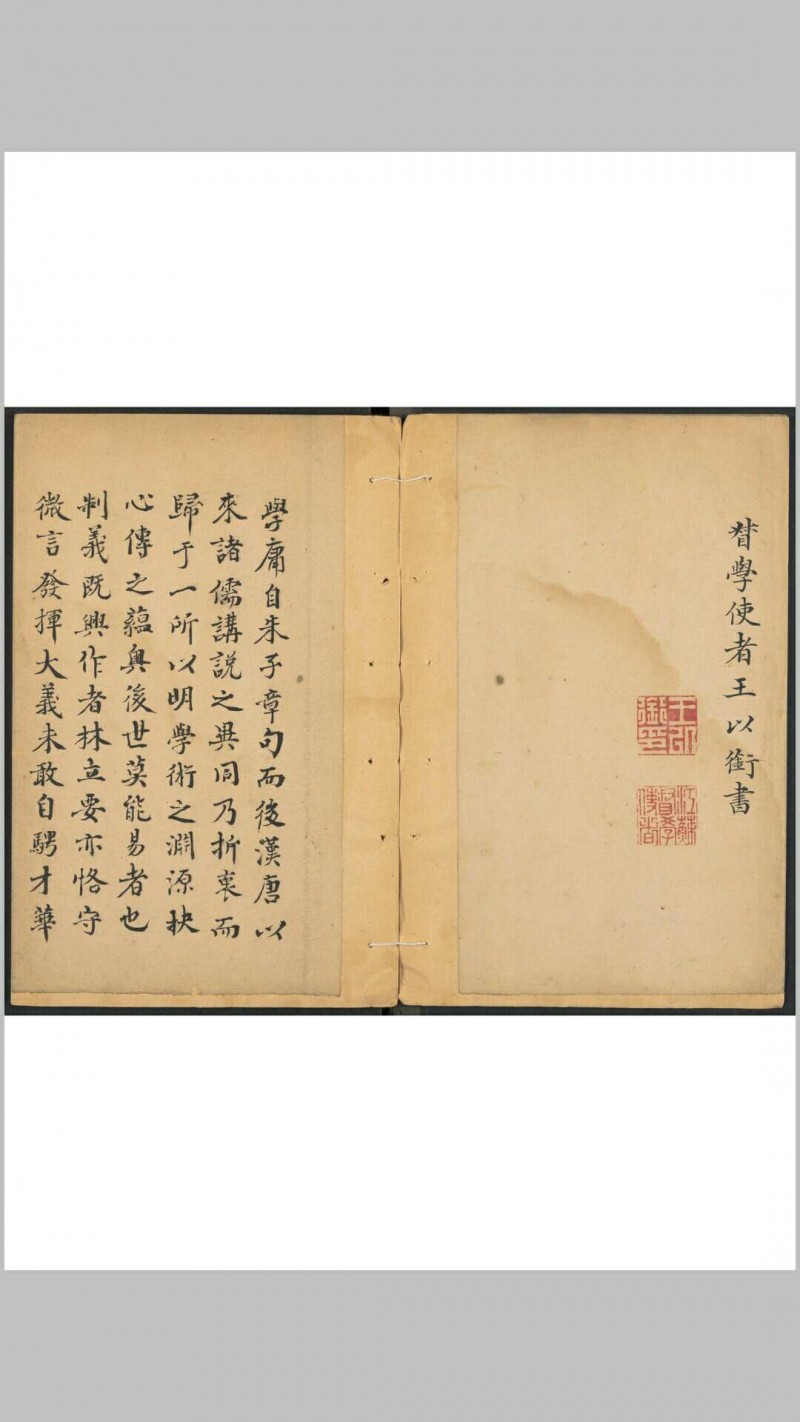 督學使者王以銜書
王以銜印
江蘇督學使者
學庸自朱子章句而後漢唐以
來諸儒講說之異同乃折衷而
歸于一所以明學術之淵源抉
心傳之蘊奧後世莫能易者也
制義既興作者林立要亦恪守
微言發揮大義未敢自騁才華